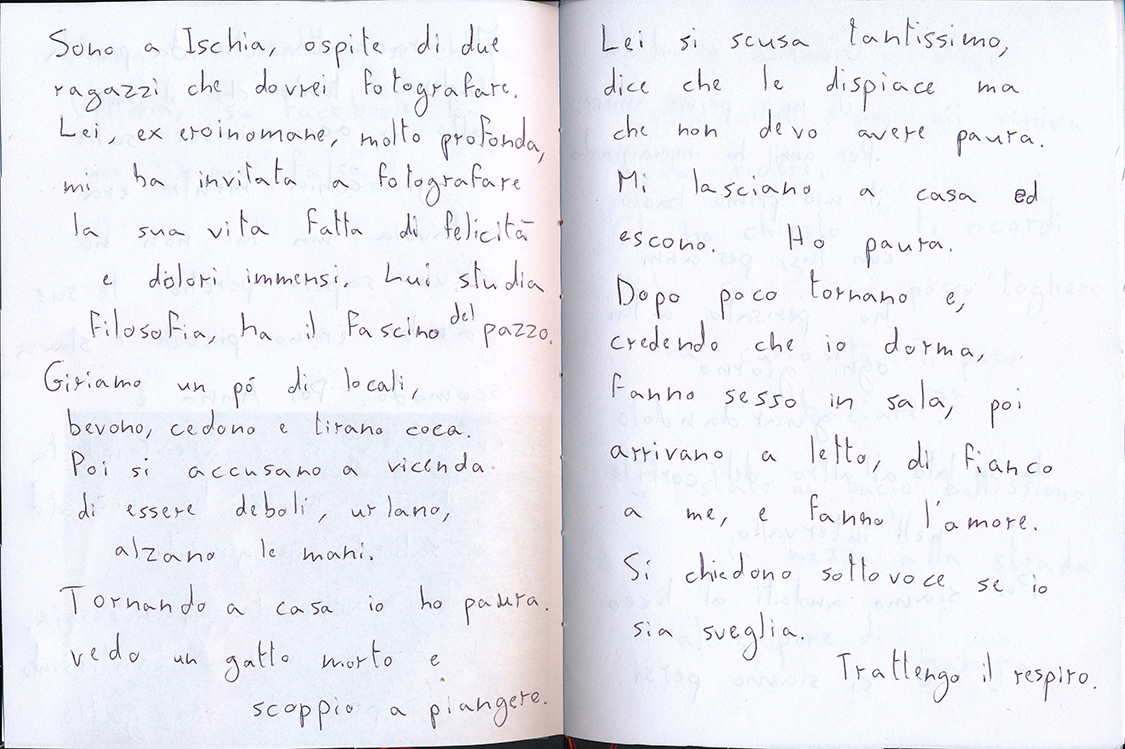 Sono a Ischia, ospite di due
ragazzi che dovrei fotografare.
Lei, ex eroinomane, molto profonda,
mi ha invitata a fotografare
la sua vita fatta di felicità
e dolori immensi. Lui studia
filosofia, ha il fascino del pazzo.
Giriamo un pó di locali,
bevono, cedono e tirano coca.
Poi si accusano a vicenda
di essere deboli, urlano,
alzano le mani.
Tornando a casa io ho paura.
vedo un gatto morto e
scoppio a piangere.
Lei si scusa tantissimo,
dice che le dispiace ma
che non devo avere paura.
Mi lasciano a casa ed
escono. Ho paura.
Dopo poco tornano e,
credendo che io dorma,
fanno sesso in sala, poi
arrivano a letto, di fianco
a me, e fanno l'amore.
Si chiedono sottovoce se io
sia sveglia.
Trattengo il respiro.